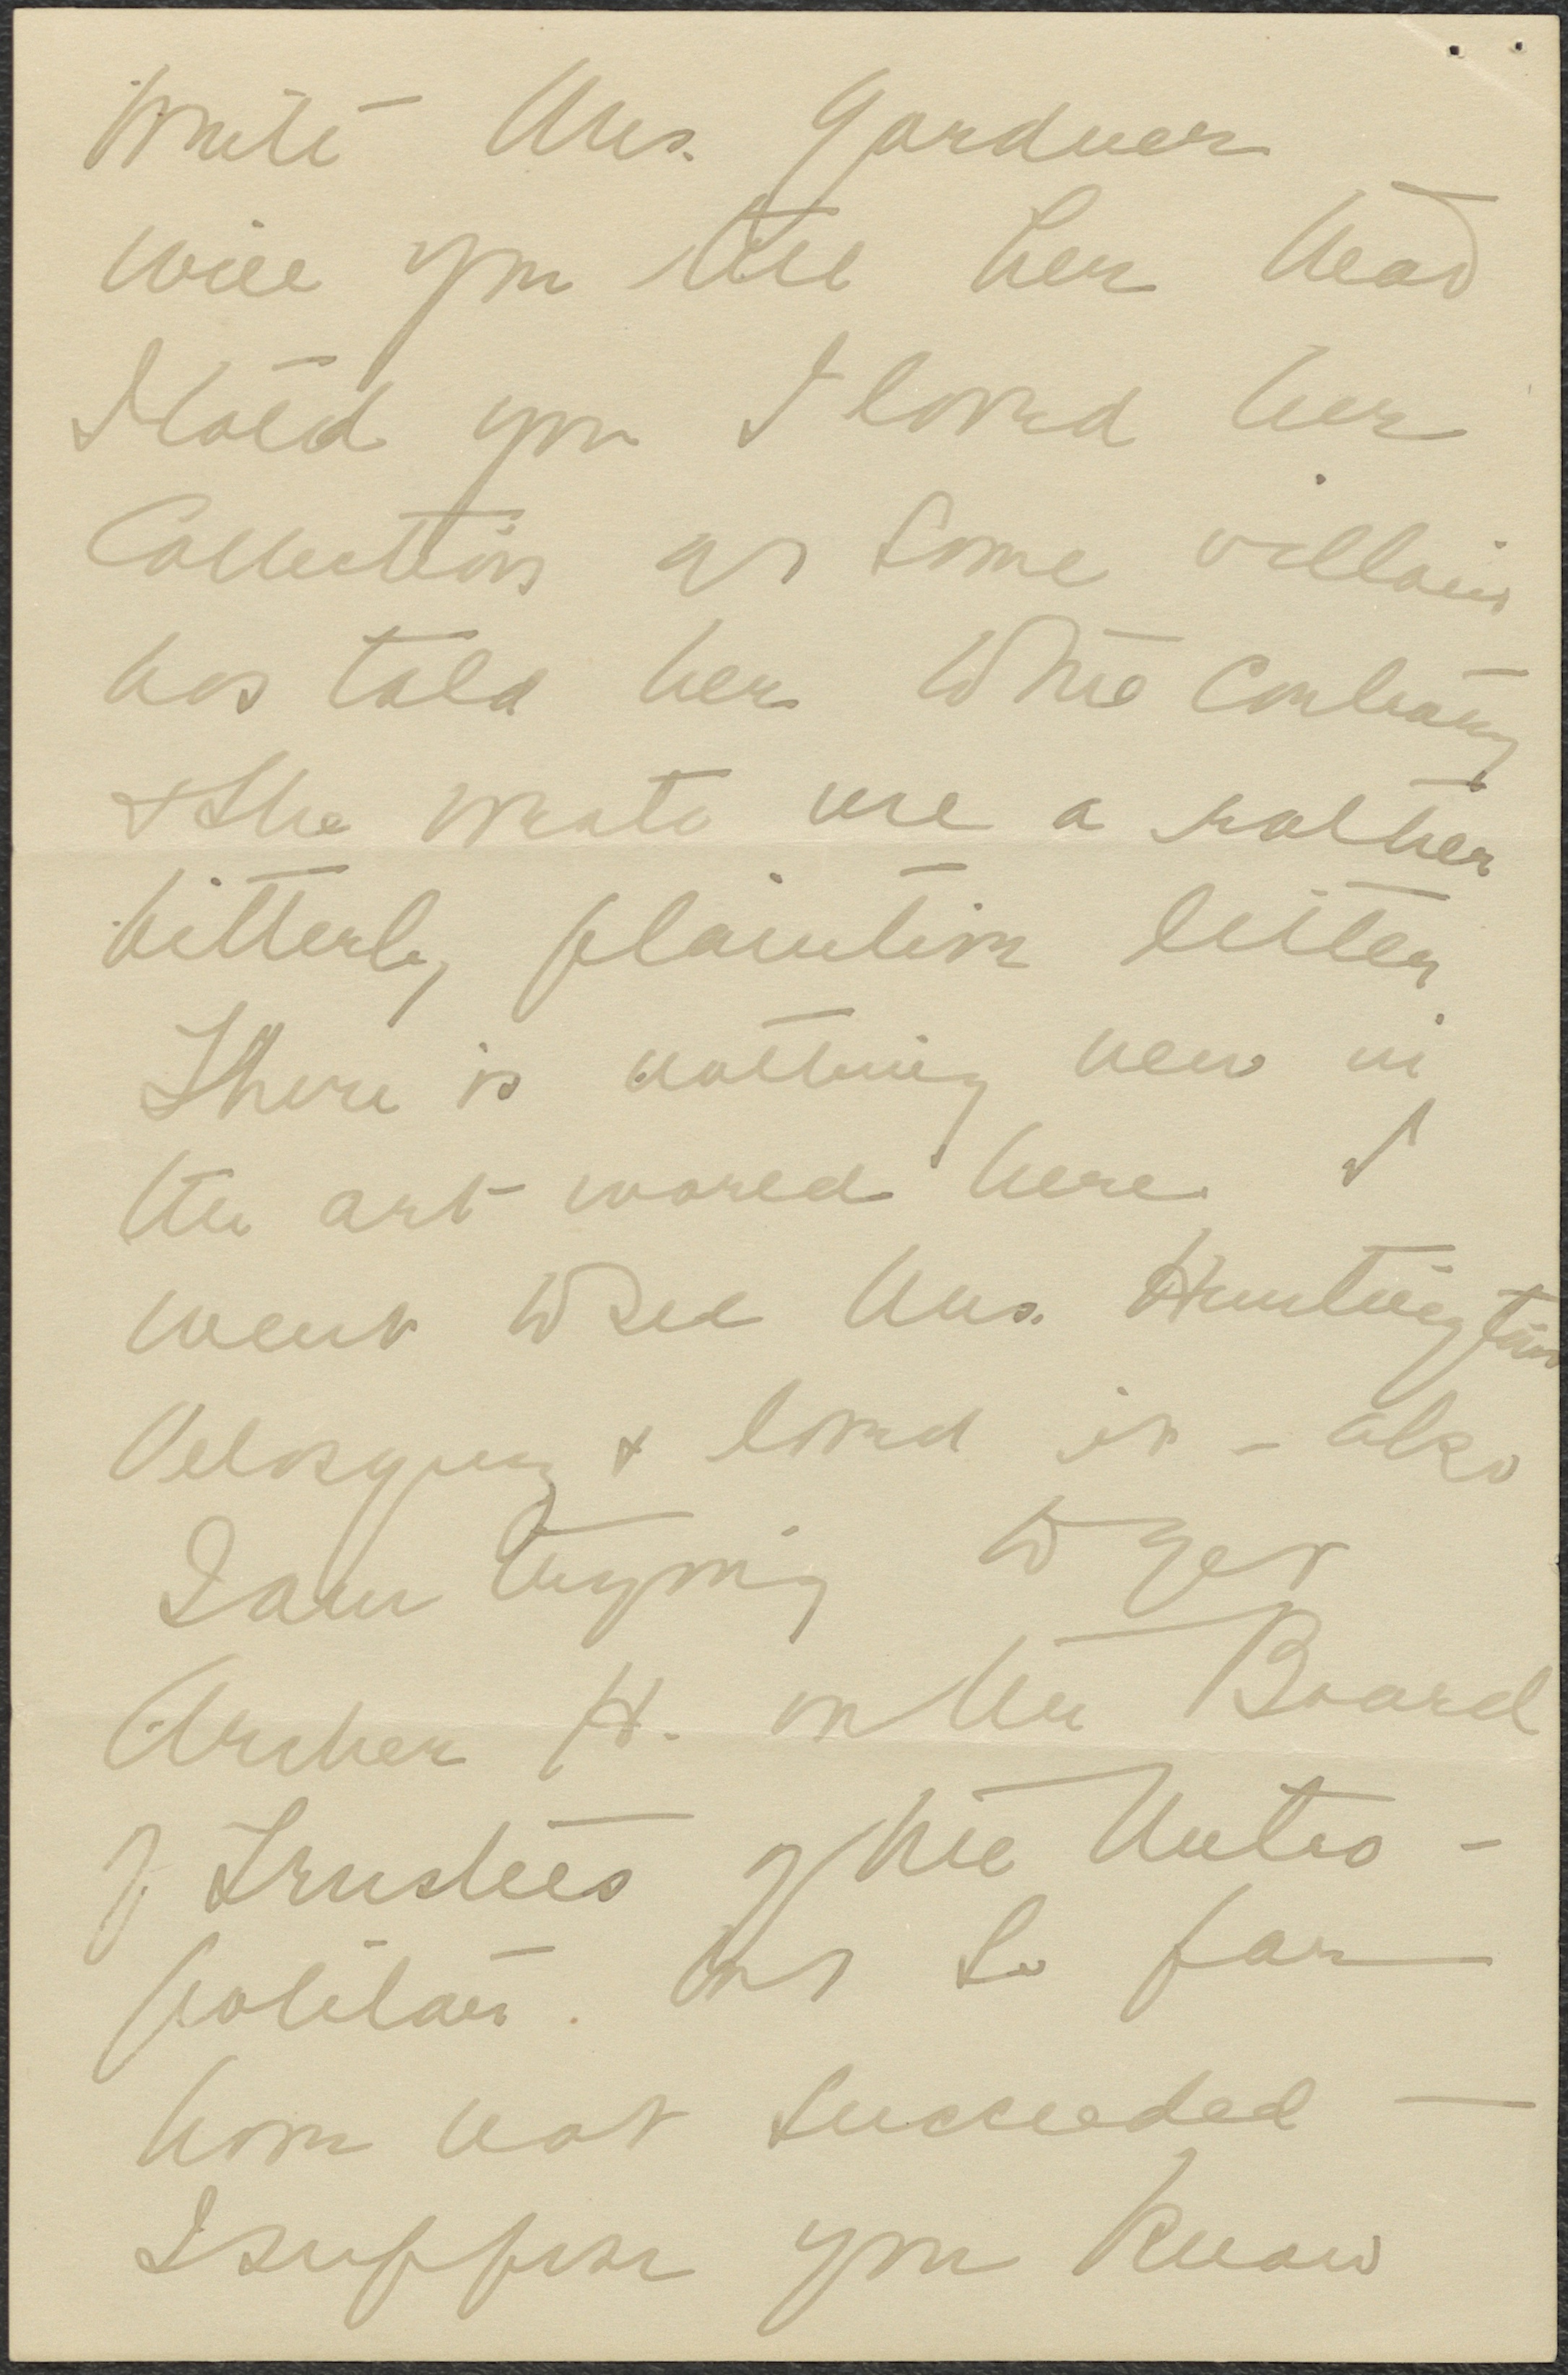 write Mrs. Gardner
will you tell her that
I told you I loved her
Collection as some villain
has told her to the contrary
& she wrote me a rather
bitterly plaintive letter
There is nothing new in
the art world here. I
went to see Mrs. Huntington
Velasquez & loved it - also
I am trying to get
Archer H. on the Board
of Trustees of the Metro -
politan. but so far
have not succeeded —
I suppose you know